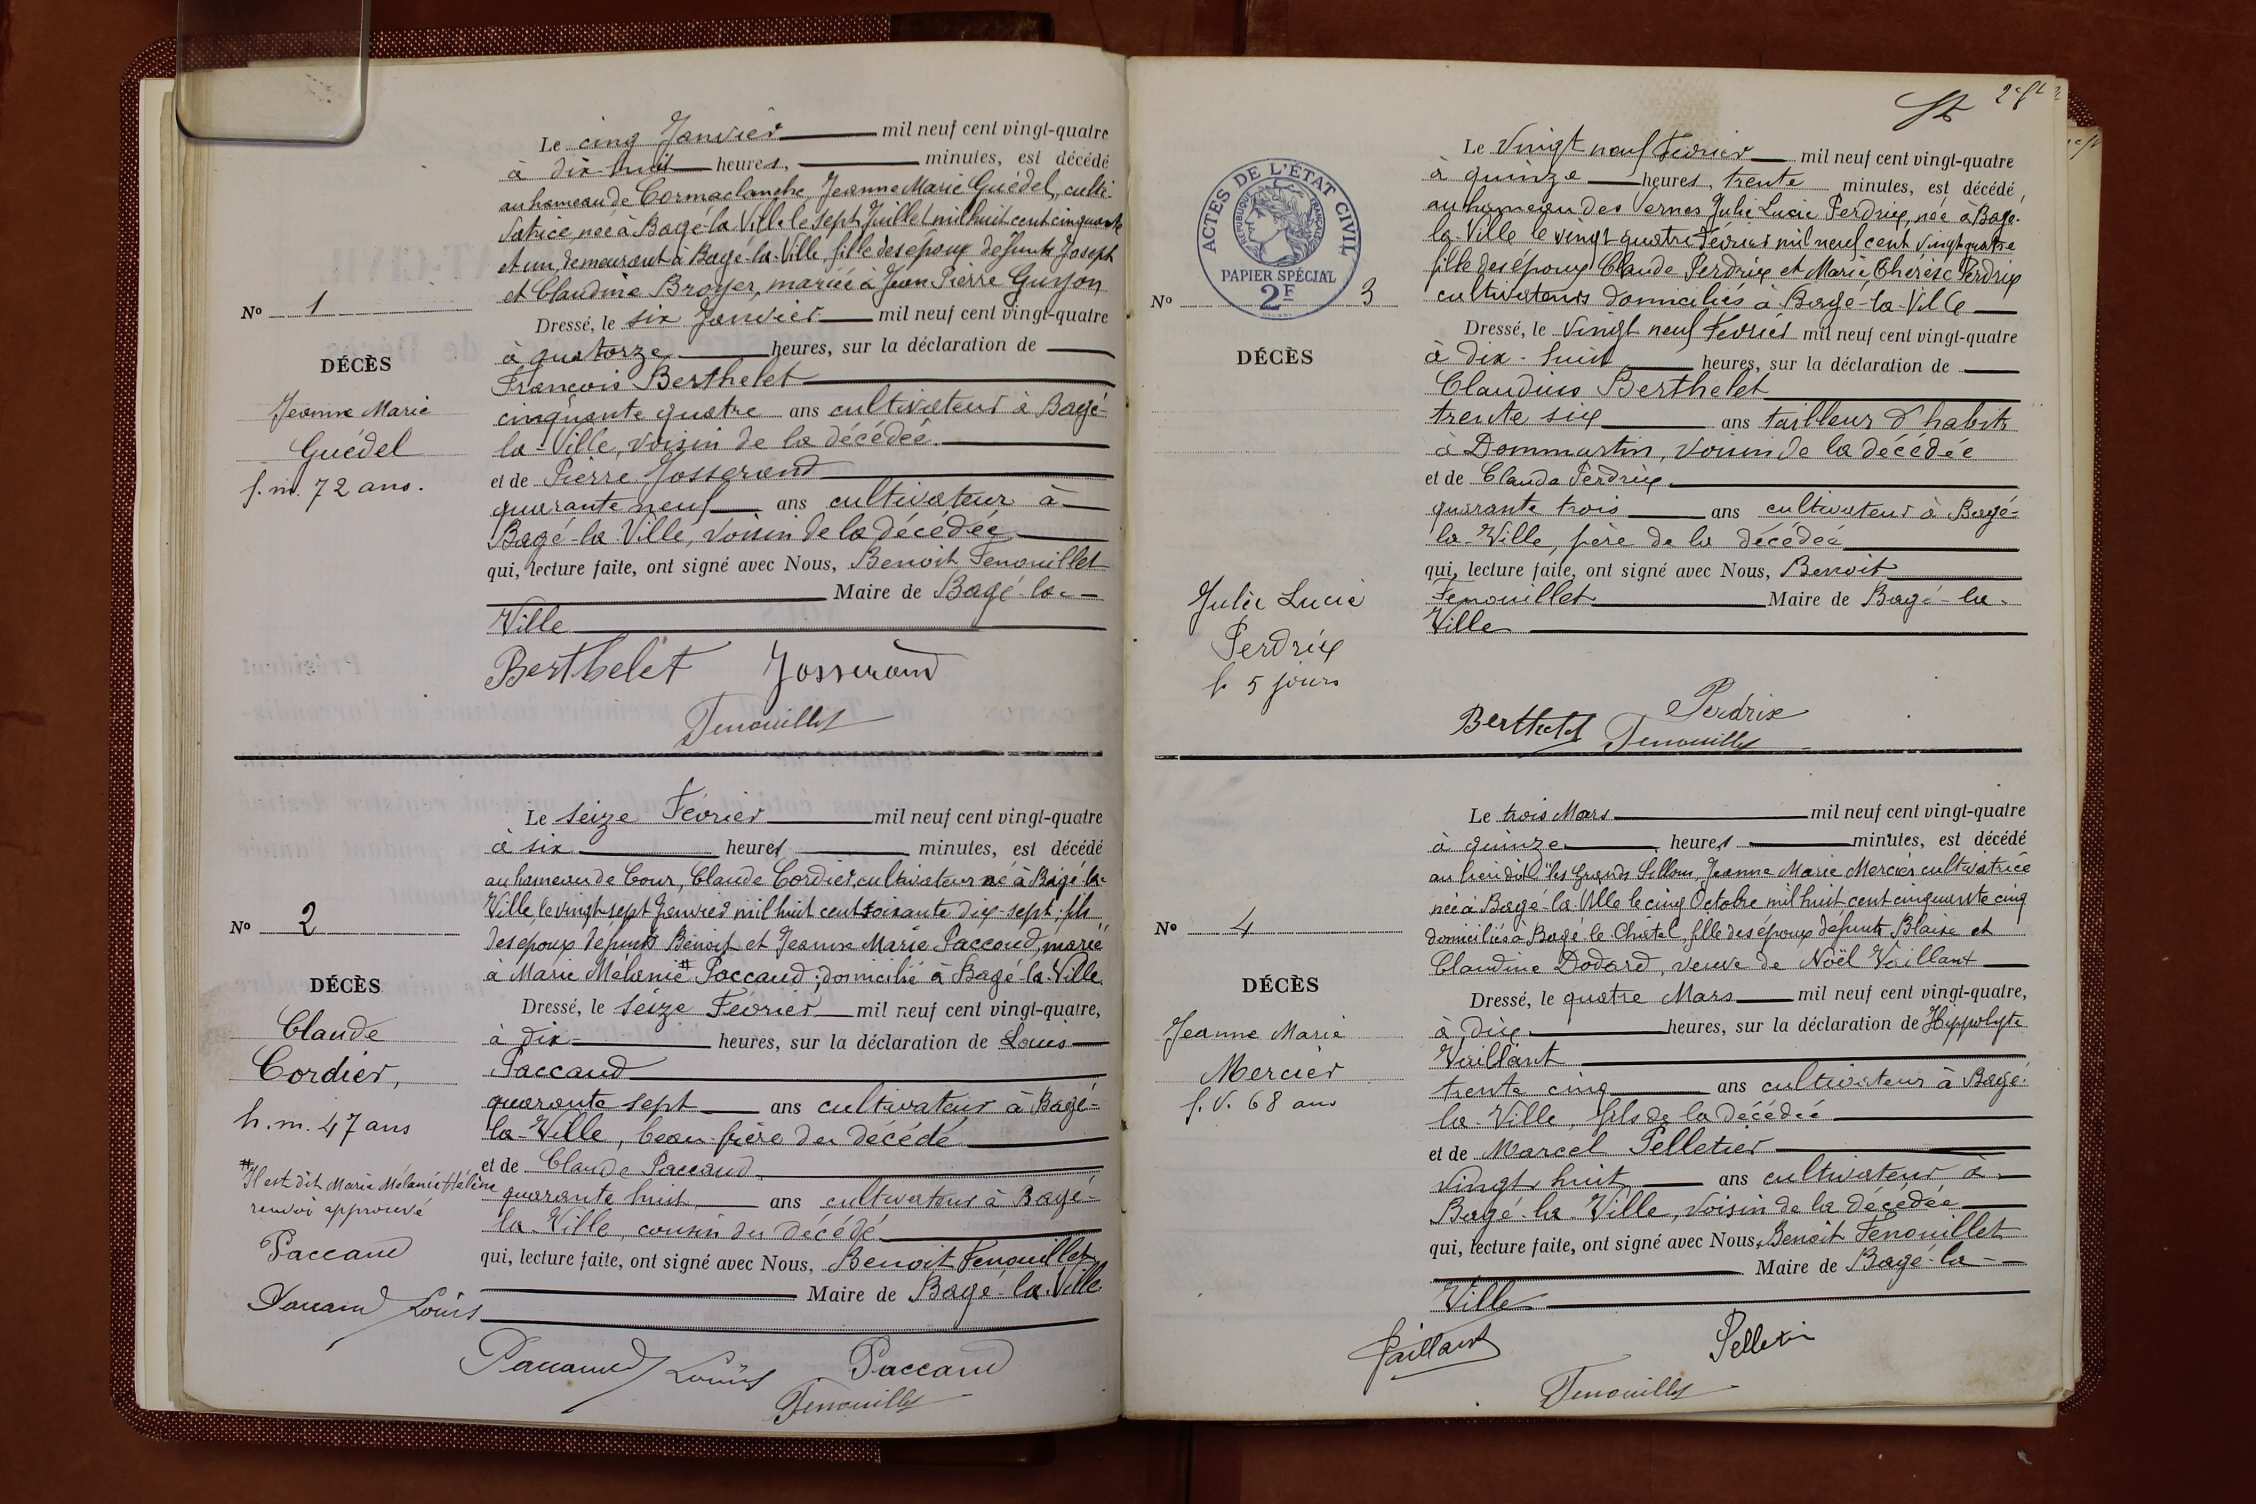 Le cinq Janvier mil neuf cent vingt-quatre
à dix-huit heures, minutes, est décédé
au hameau de Cormaclanche, Jeanne Marie Guédel, culti-
vatrice, née à Bagé-la-Ville le sept Juillet mil huit cent cinquante
et un, demeurant à Bagé-la-Ville, fille des époux défunts Joseph
et Claudine Broyer, mariée à Jean Pierre Guyon
No 1
Dressé, le six Janvier mil neuf cent vingt-quatre
à quatorze heures, sur la déclaration de
François Berthelet
cinquante quatre ans cultivateur à Bagé-
la-Ville, voisin de la décédée
et de Pierre Josserand
quarante neuf ans cultivateur à
Bagé-la-Ville, voisin de la décédée
qui, lecture faite, ont signé avec Nous, Benoit Fenouillet
Maire de Bagé-la-
Ville
DÉCÈS
Jeanne Marie
Guédel
f. m. 72 ans.
Berthelet Josserand
Fenouillet
Le seize Février mil neuf cent vingt-quatre
à six heures minutes, est décédé
au hameau de Cour, Claude Cordier, cultivateur né à Bagé-la-
Ville le vingt-sept Janvier mil huit cent soixante dix-sept; fils
des époux défunts Benoit et Jeanne Marie Paccaud, marié
à Marie Mélanie # Paccaud; domicilié à Bagé-la-Ville
No 2
Dressé, le seize Février mil neuf cent vingt-quatre,
à dix heures, sur la déclaration de Louis
Paccaud
quarante sept ans cultivateur à Bagé-
la-Ville, beau-frère du décédé
et de Claude Paccaud
quarante huit ans cultivateur à Bagé-
la-Ville, cousin du décédé
qui, lecture faite, ont signé avec Nous, Benoit Fenouillet
Maire de Bagé-la-Ville
DÉCÈS
Claude
Cordier,
h. m. 47 ans
# Il est dit Marie Mélanie Hélène
renvoi approuvé
Paccaud
Paccaud Louis
Paccaud Louis Paccaud
Fenouillet
2e ft
ACTES DE L'ÉTAT CIVIL
RÉPUBLIQUE FRANÇAISE
PAPIER SPÉCIAL
2F
Le vingt neuf Février mil neuf cent vingt-quatre
à quinze heures, trente minutes, est décédé
au hameau des Vernes Julie Lucie Perdrix, née à Bagé-
la-Ville le vingt quatre Février mil neuf cent vingt quatre
fille des époux Claude Perdrix et Marie Thérèse Perdrix
cultivateurs domiciliés à Bagé-la-Ville
No 3
Dressé, le vingt neuf Février mil neuf cent vingt-quatre
à dix-huit heures, sur la déclaration de
Claudius Berthelet
trente six ans tailleur d'habits
à Dommartin, voisin de la décédée
et de Claude Perdrix
quarante trois ans cultivateur à Bagé-
la-Ville, père de la décédée
qui, lecture faite, ont signé avec Nous, Benoit
Fenouillet Maire de Bagé-la-
Ville
DÉCÈS
Julie Lucie
Perdrix
f. 5 jours
Perdrix
Berthelet Fenouillet
Le trois Mars mil neuf cent vingt-quatre
à quinze heures minutes, est décédé
au lieu dit "les Grands Sillons, Jeanne Marie Mercier cultivatrice
née à Bagé-la-Ville le cinq Octobre mil huit cent cinquante cinq
domiciliée à Bagé le Châtel fille des époux défunts Blaise et
Claudine Dodard, veuve de Noël Vaillant
No 4
Dressé, le quatre Mars mil neuf cent vingt-quatre,
à dix heures, sur la déclaration de Hippolyte
Vaillant
trente cinq ans cultivateur à Bagé-
la-Ville, fils de la décédée
et de Marcel Pelletier
vingt huit ans cultivateur à
Bagé-la-Ville, voisin de la décédée
qui, lecture faite, ont signé avec Nous, Benoit Fenouillet
Maire de Bagé-la-
Ville
DÉCÈS
Jeanne Marie
Mercier
f. v. 68 ans
Vaillant Pelletier
Fenouillet